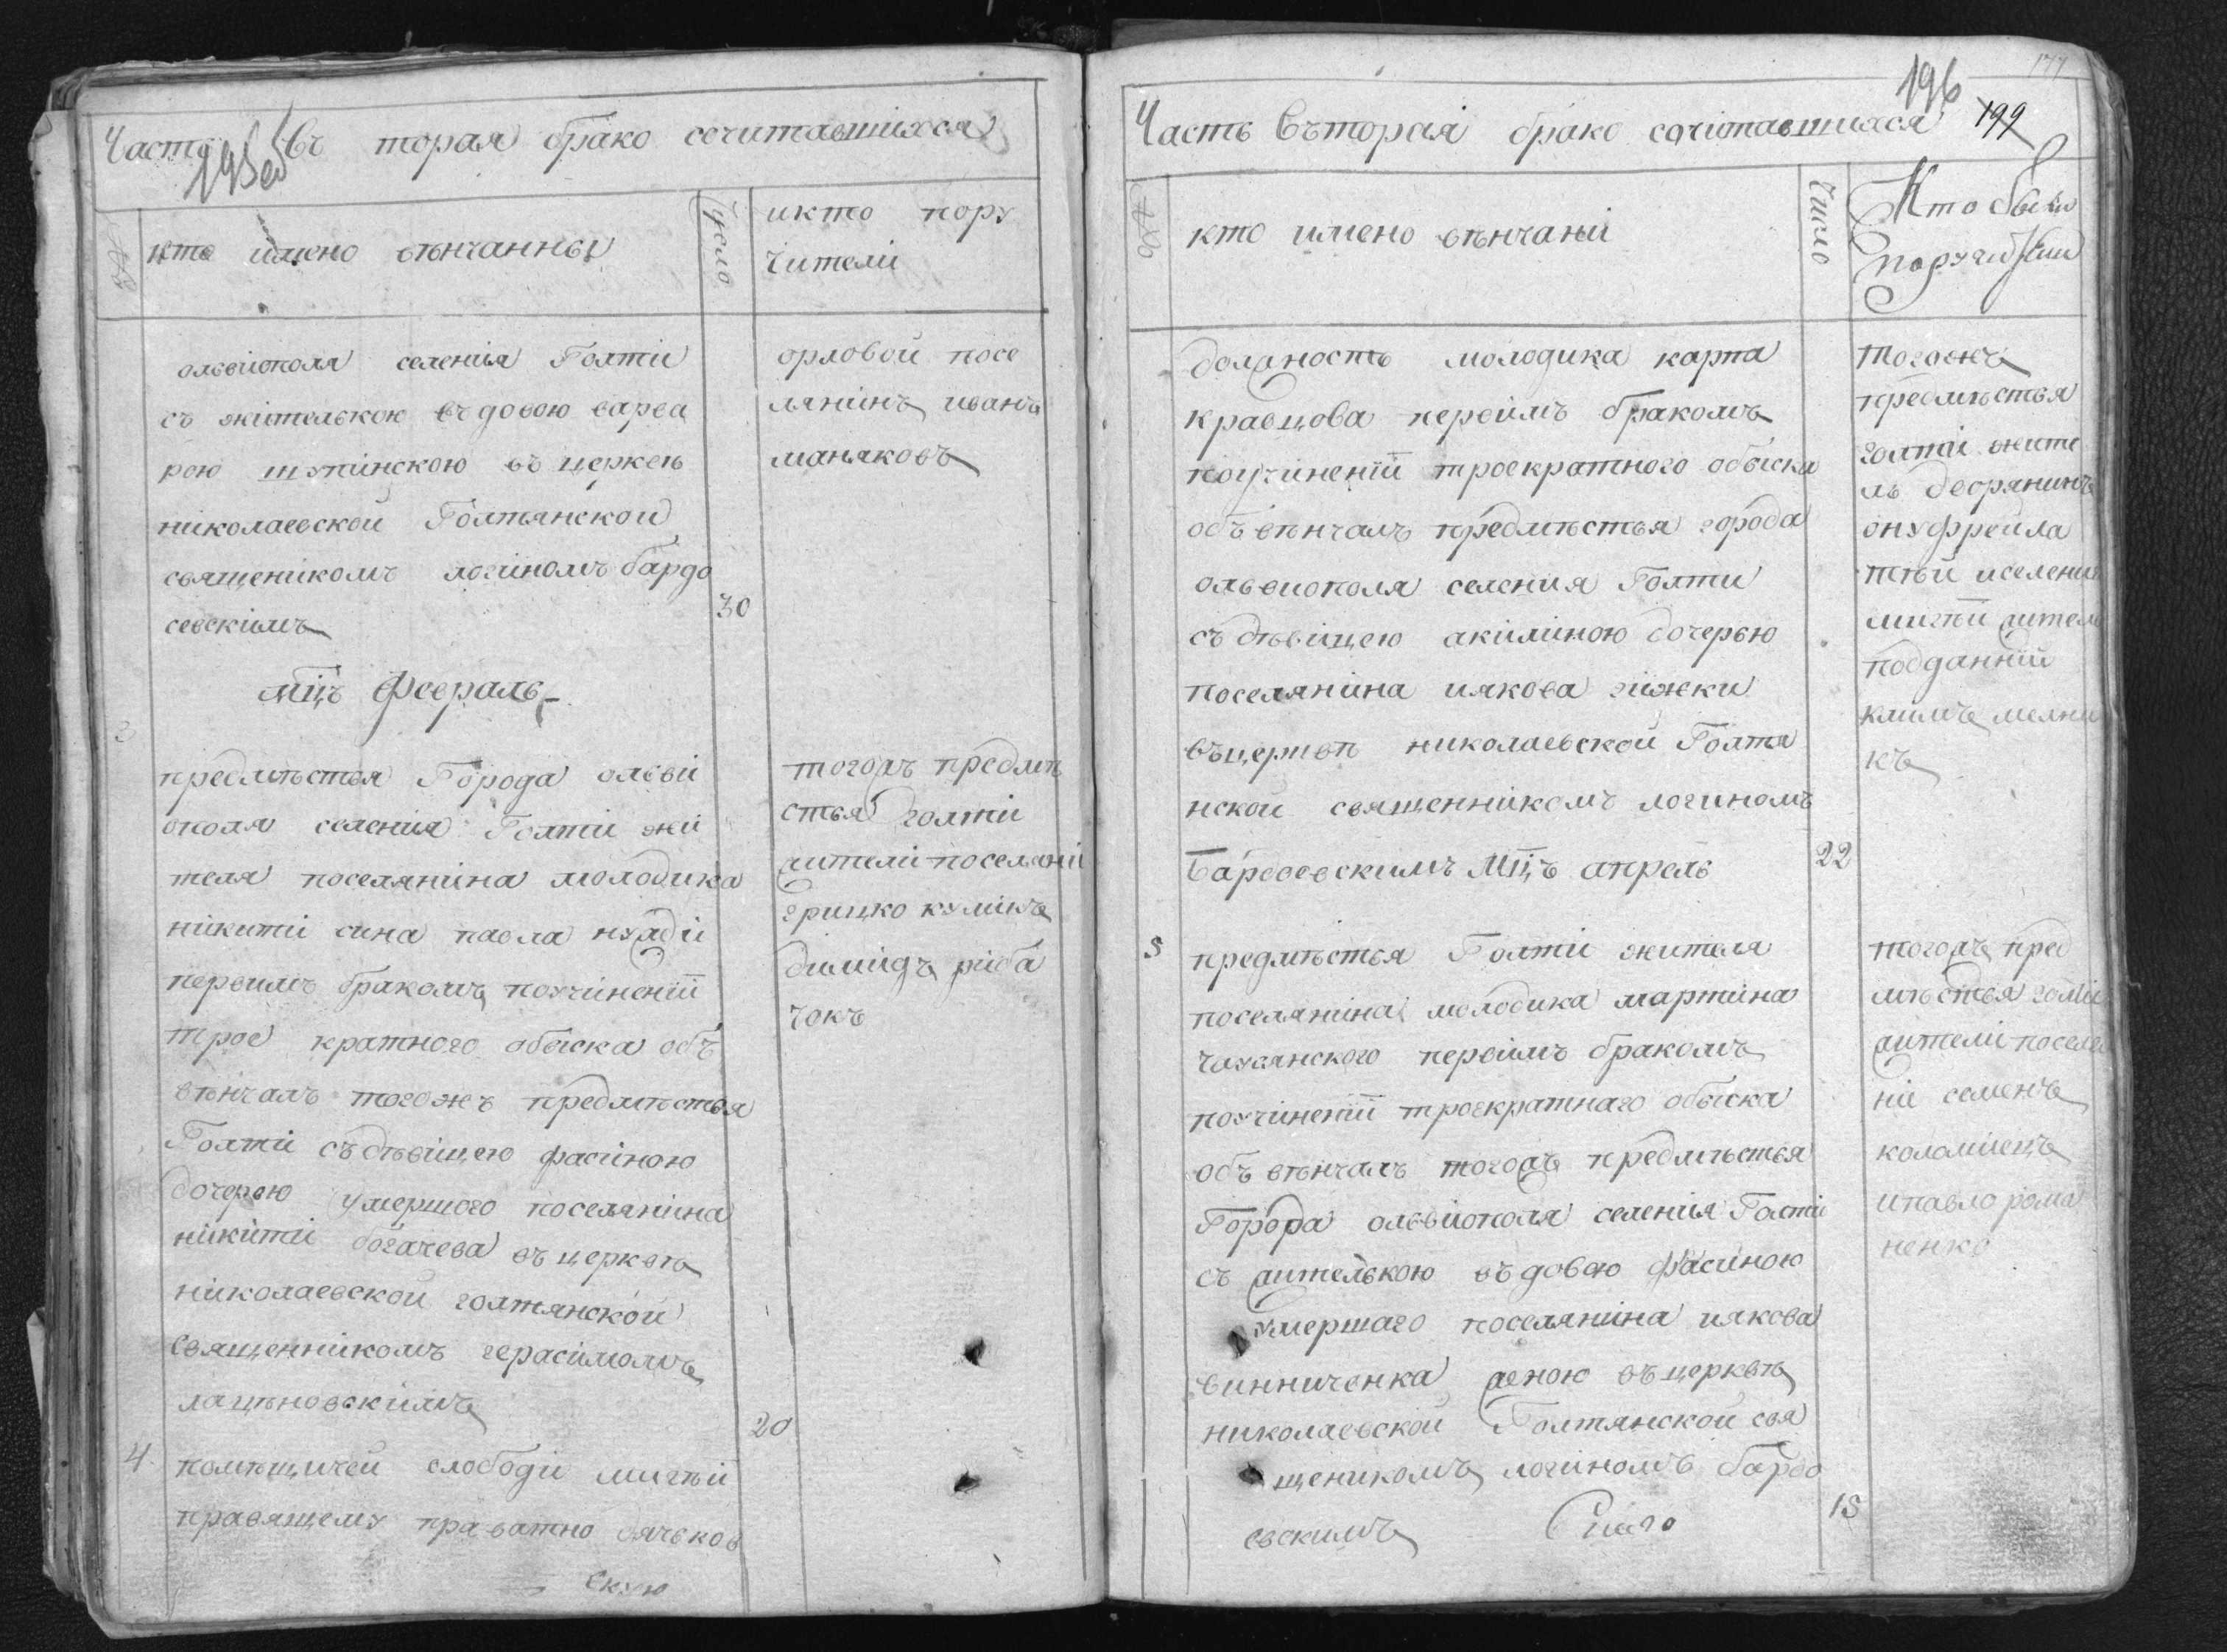 Часть въ торая брако сочитавшихся
195об
№
кто имено венчанны
число
икто пору
чители
ольвиополя селения Голти
съ жителькою въдовою варва
рою шупинскою въ церквѣ
николаевской Голтянской
священикомъ логиномъ бардо
севскимъ
30
орловой посе
лянинъ иванъ
маняковъ
мцъ февраль
3
предмѣстья Города ольви
ополя селения Голти жи
теля поселянина молодика
никити сина павла
первимъ бракомъ поучинений
трое кратного обиска объ
вѣнчалъ тогожъ предмѣстья
Голти съдѣвицею фасиною
дочерью умершого поселянина
никити богачева въ церквѣ
николаевской голтянской
священникомъ герасимомъ
лацѣновскимъ
20
тогожъ предмѣ
стья голти
жители поселяни
грицко куликъ
димидъ риба
чокъ
4
помѣщичей слободи мигѣй
правящему приватно
скую
196
199
177
Часть въторая брако сочитавшихся
№
кто имено вѣнчаний
Число
Кто были
поручители
должность молодика карпа
кравцова первимъ бракомъ
поучинений троекратного обиска
объвѣнчалъ предмѣстья города
ольвиополя селения Голти
съдѣвицею акилиною дочерью
поселянина иякова гижки
въцерквѣ николаевской Голтя
нской священникомъ логиномъ
Бардосевскимъ Мцъ апрель
22
тогожъ
предмѣстья
голти жите
ль дворянинъ
онуфрей ла
птѣй иселения
мигѣй жител
подданний
климъ мелни
къ
5
предмѣстья Голти жителя
поселянина молодика мартина
чаусянского первимъ бракомъ
поучинений троекратнаго обиска
объ вѣнчалъ тогожъ предмѣстья
Города ольвиополя селения Голти
съ жителькою въдовою фасиною
умершаго поселянина иякова
винниченка женою въцерквѣ
николаевской Голтянской свя
щеникомъ логиномъ бардо
севскимъ
15
тогожъ пред
мѣстья голти
жители поселя
ни семенъ
коломиецъ
ипавло рома
ненко